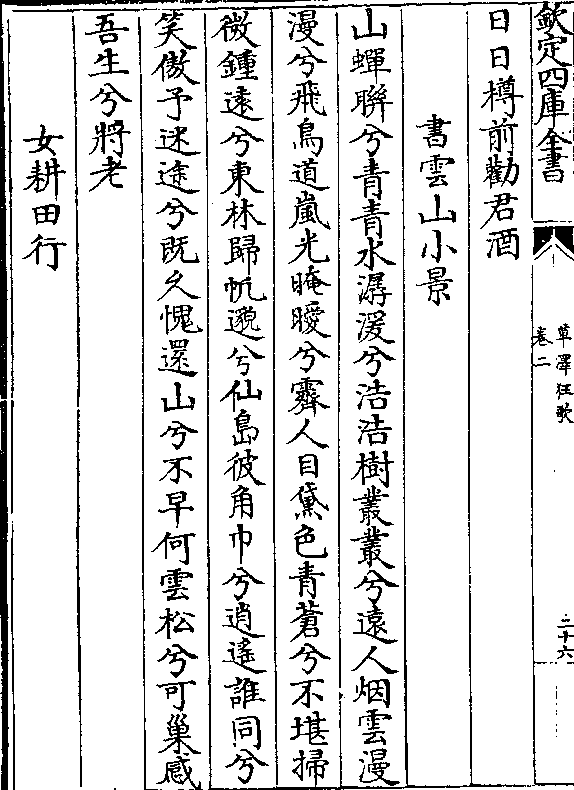 欽定四庫全書
草澤狂歌
卷二
二十六
日日樽前勸君酒
書雲山小景
山蟬聯兮青青水潺湲兮浩浩樹叢叢兮遠人烟雲漫
漫兮飛鳥道嵐光晻曖兮霽人目黛色青蒼兮不堪掃
微鍾遠兮東林歸帆邈兮仙島彼角巾兮逍遙誰同兮
笑傲予迷途兮既久愧還山兮不早何雲松兮可巢感
吾生兮將老
女耕田行